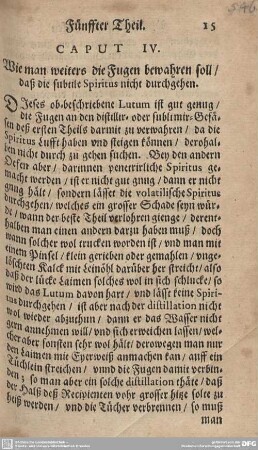 Fünffter Theil. 15
CAPUT IV.
Wie man weiters die Fugen bewahren soll /
daß die subtile Spiritus nicht durchgehen.
DJeses ob-beschriebene Lutum ist gut genug /
die Fugen an den distillir- oder sublimir-Gefä-
sen deß ersten Theils darmit zu verwahren / da die
Spiritus Lufft haben und steigen können / derohal-
ben nicht durch zu gehen suchen. Bey den andern
Oefen aber / darinnen penetrirliche Spiritus ge-
macht werden / ist er nicht gut gnug / dann er nicht
gnug hält / sondern lässet die volatilische Spiritus
durchgehen / welches ein grosser Schade seyn wür-
de / wann der beste Theil verlohren gienge / derent-
halben man einen andern darzu haben muß / doch
wann solcher wol trucken worden ist / und man mit
einem Pinsel / klein gerieben oder gemahlen / unge-
löschten Kalck mit Leinöhl darüber her streicht / also
daß der lücke Laimen solches wol in sich schlucke / so
wird das Lutum davon hart / und lässt keine Spiri-
tus durchgehen / ist aber nach der distillation nicht
wol wieder abzuthun / dann er das Wasser nicht
gern annehmen will / und sich erweichen lassen / wel-
cher aber sonsten sehr wol hält / derowegen man nur
den Laimen mit Eyerweiß anmachen kan / auff ein
Tüchlein streichen / unnd die Fugen damit verbin-
den ; so man aber ein solche distillation thäte / daß
der Halß deß Recipienten vohr grosser hitze solte zu
heiß werden / und die Tücher verbrennen / so muß
man
DFG